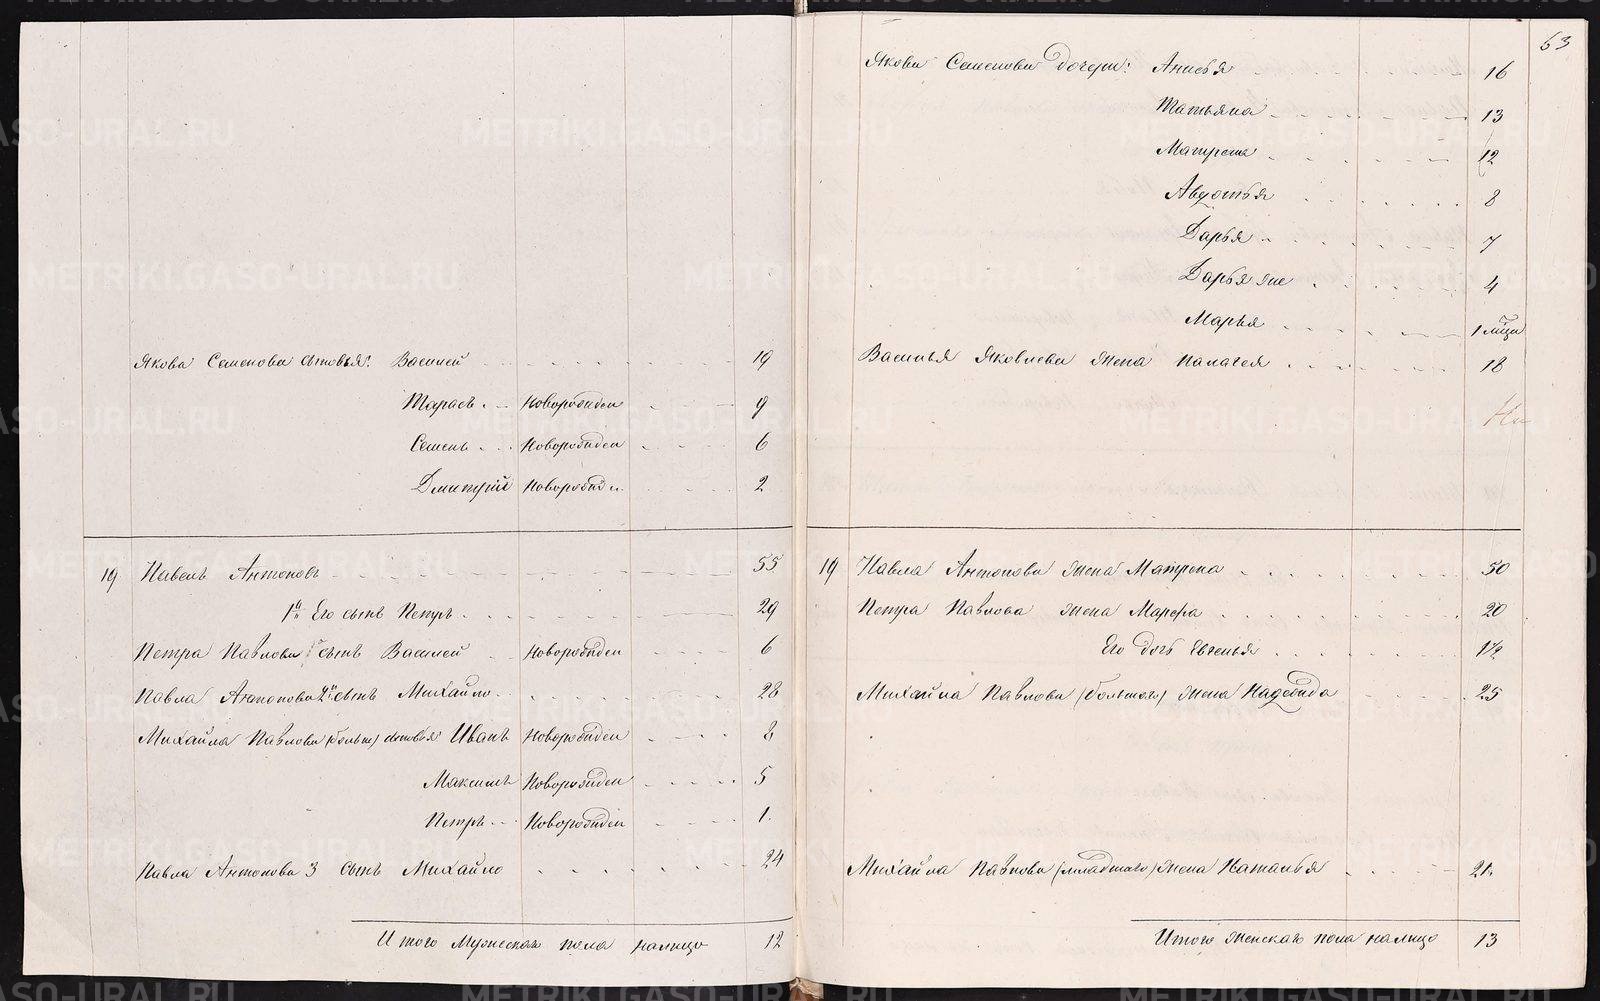 Якова Семенова сыновья: Василей 19
Тарасъ Новорожден 9
Семенъ Новорожден 6
Дмитрий Новорожден 2
19 Павелъ Антоновъ 55
1й Его сынъ Петръ 29
Петра Павлова сынъ Василей Новорожден 6
Павла Антонова 2й сынъ Михайло 28
Михайла Павлова (больш) сыновья Иванъ Новорожден 8
Максимъ Новорожден 5
Петръ Новорожден 1
Павла Антонова 3 сынъ Михайло 24
Итого Мужеска пола налицо 12
63
Якова Семенова дочери: Анисья 16
Татьяна 13
Матрена 12
Авдотья 8
Дарья 7
Дарья же 4
Марья 1
Василья Яковлева жена Палагея 18
19 Павла Антонова жена Матрена 50
Петра Павлова жена Марфа 20
Его дочь Евгенья 1½
Михайла Павлова (большаго) жена Надежда 25
Михайла Павлова (младшаго) жена Наталья 21
Итого женска пола налицо 13
METRIKI.GASO-URAL.RU